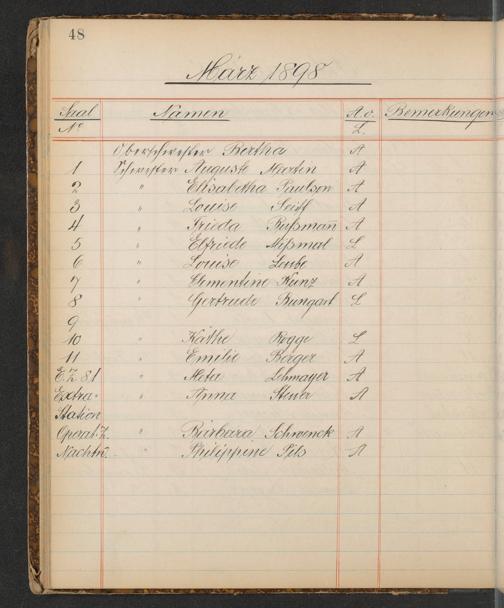 48
März 1898
Saal No Namen A. o. L. Bemerkungen
Oberschwester Bertha A
1 Schwester Auguste Martin A
2 " Elisabetha Paulson A
3 " Louise Seiff A
4 " Frieda Rußman A
5 " Elfriede Meßmal L
6 " Louise Leube A
7 " Clementine Kunz A
8 " Gertrude Bungart L
9
10 " Käthe Rogge L
11 " Emilie Berger A
E.Z. 81 " Meta Lehmayer A
Extra- " Anna Steuer A
Station
Operat. Z. " Barbara Schwenck A
Nachtw. " Philippine Pils A